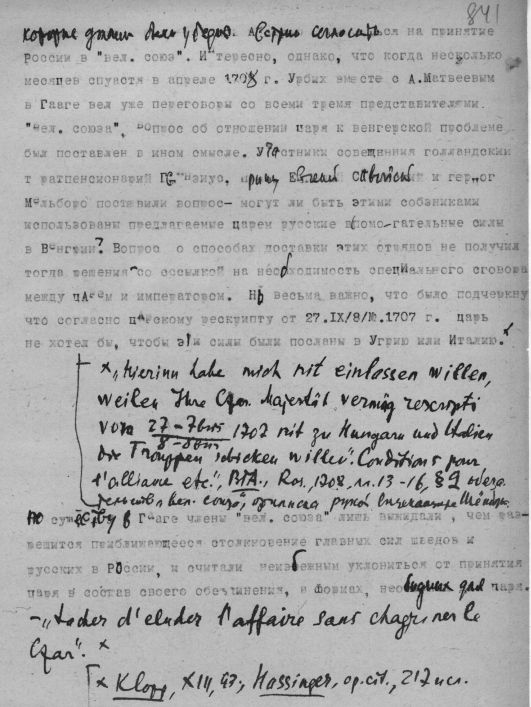 841
которые должны были убедить Австрию согласиться на принятие
России в "вел. союз". Интересно, однако, что когда несколько
месяцев спустя в апреле 1708 г. Урбих вместе с А.Матвеевым
в Гааге вел уже переговоры со всеми тремя представителями
"вел. союза", вопрос об отношении царя к венгерской проблеме
был поставлен в ином смысле. Участники совещания голландский
ратпенсионарий принц Евгений Савойский и герцог
Мальборо поставили вопрос- могут ли быть этими союзниками
использованы предлагаемые царем русские вспомогательные силы
в Венгрии? Вопрос о способах доставки этих отрядов не получил
тогда решения со ссылкой на необходимость специального сговора
между царем и императором. Но весьма важно, что было подчеркну
что согласно царскому рескрипту от 27.IX/8/X.1707 г. царь
не хотел бы, чтобы эти силы были посланы в Угрию или Италию.x
x „Hierinn habe mich nit einlassen willen,
weilen Ihre Czar. Majestät vermög rescripti
vom 27 – 7bris / 8 – 8bris 1707 nit zu Hungarn und Italien
die Trouppen schicken willen". Conditions pour
l'alliance etc.", Rus. 1708, л. 13-16, § 2
"вел. союза",
По существу в Гааге члены "вел. союза" лишь выжидали, чем раз-
решится приближающееся столкновение главных сил шведов и
русских в России, и считали неизбежным уклониться от принятия
царя в состав своего объединения, в формах, для царя.
–„tacher d'eluder l'affaire sans chagriner le
Czar". x
x Klopp, XIII, 43; Hassinger, op. cit., 217 и сл.